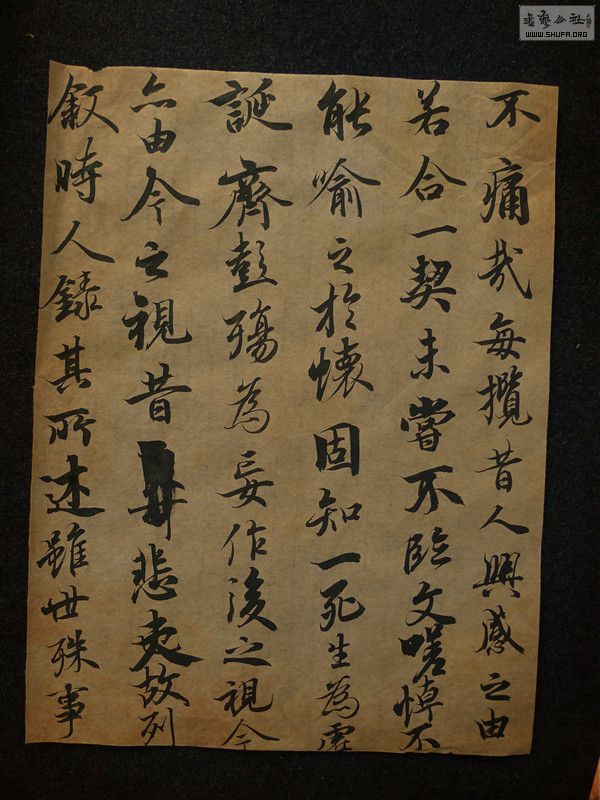 不痛哉每攬昔人興感之由
若合一契未嘗不臨文嗟悼不
能喻之於懷固知一死生為虛
誕齊彭殤為妄作後之視今
亦由今之視昔悲夫故列
敘時人錄其所述雖世殊事
書藝公社
WWW.SHUFA.ORG